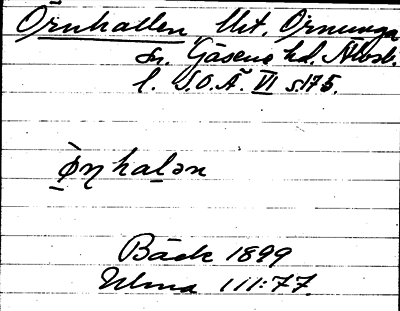 Örnhallen Utt. Ornunga
sn. Gäsene hd. Älvsb.
l. S.O.Ä. VI s.175.
ö̀ŋhalən
Bäck 1899
Ulma 111:77.